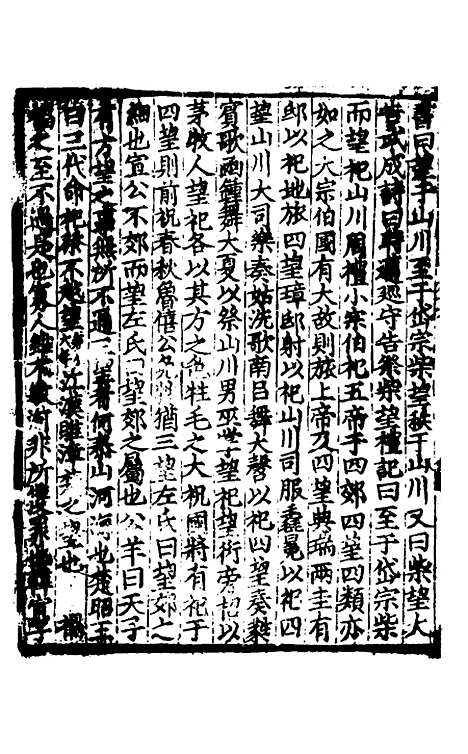 書曰望于山川至于岱宗柴望秩于山川又曰柴望大
告武成詩曰時邁廵守告祭柴望禮記曰至于岱宗柴
而望祀山川周禮小宗伯祀五帝于四郊四望四類亦
如之大宗伯國有大故則旅上帝及四望典瑞兩圭有
邸以祀地旅四望璋邸射以祀山川司服毳冕以祀四
望山川大司樂奏姑洗歌南呂舞大磬以祀四望奏蕤
賓歌函鍾舞大夏以祭山川男巫掌望祀望衍旁招以
茅牧人望祀各以其方之色牲毛之大祝國將有祀于
四望則前祝春秋魯僖公猶三望左氏曰望郊之
細也宣公不郊而望左氏曰望郊之屬也公羊曰天子
有方望之事無所不通三望者何泰山河海也楚昭王
曰三代命祀祭不越望江漢睢漳楚之望也禍
福之至不過是也寡人雖不穀河非所獲罪也